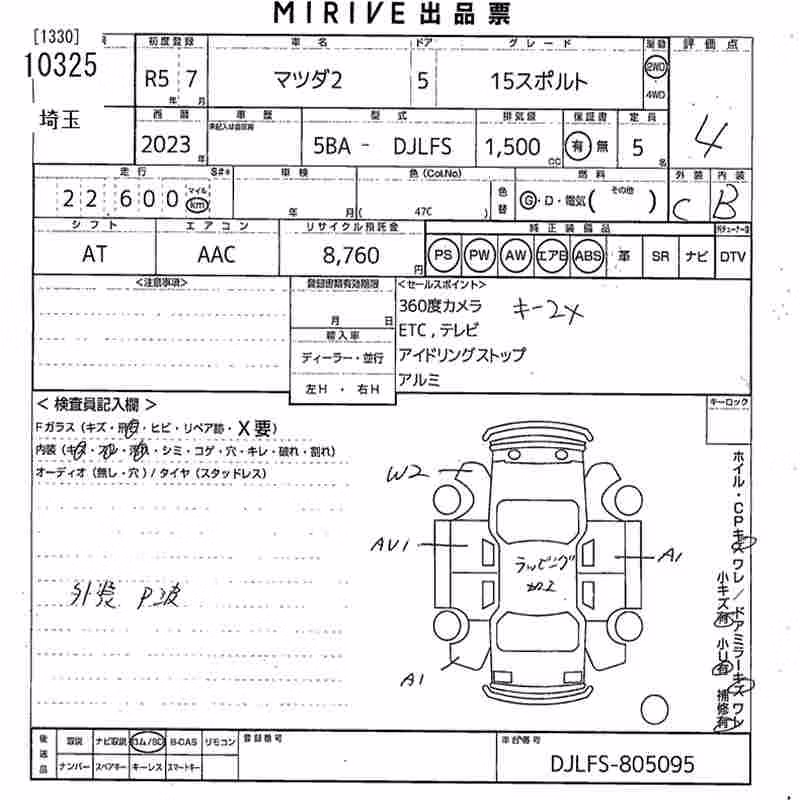 MIRIVE 出品票
[1330]
10325
埼玉
初度登録 車名 ドア グレード 駆動 評価点
R5 7 マツダ2 5 15スポルト 2WD 4WD
年 月
4
西暦 車歴 型式 排気量 保証書 定員
未記入は自家用
2023 年 5BA - DJLFS 1,500 CC 有 無 5 名
走行 S#* 車検 色 (Col.No) 燃料 外装 内装
22,600 マイル km 年 月 ( 47C ) 色替 G・D・電気 ( その他 ) C B
シフト エアコン リサイクル預託金 純正装備品
AT AAC 8,760 円 PS PW AW エアB ABS 革 SR ナビ DTV
<注意事項> 登録書類有効期限 <セールスポイント>
月 日
輸入車
ディーラー・並行
左H ・ 右H
360度カメラ キー2ケ
ETC , テレビ
アイドリングストップ
アルミ
< 検査員記入欄 > キーロック
Fガラス (キズ・飛石・ヒビ・リペア跡・X要)
内装 (キズ・スレ・汚れ・シミ・コゲ・穴・キレ・破れ・割れ)
オーディオ (無し・穴) / タイヤ (スタッドレス)
W2
AV1 A1
ラッピング
加工
外装 P波
A1
ホイル・CPキズ ワレ / ドアミラーキズ ワレ
小キズ有 小U有 補修有
後送品 取説 ナビ取説 ロム/SD B-CAS リモコン 登録番号 車台番号
ナンバー スペアキー キーレス スマートキー
DJLFS-805095